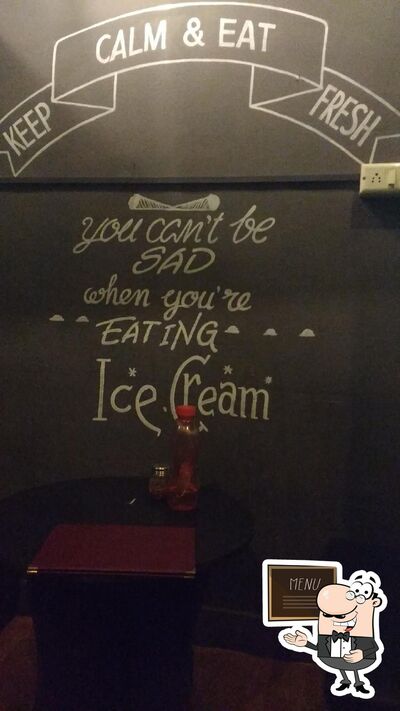 KEEP
CALM & EAT
FRESH
you can't be
SAD
when you're
EATING
Ice Cream
MENU